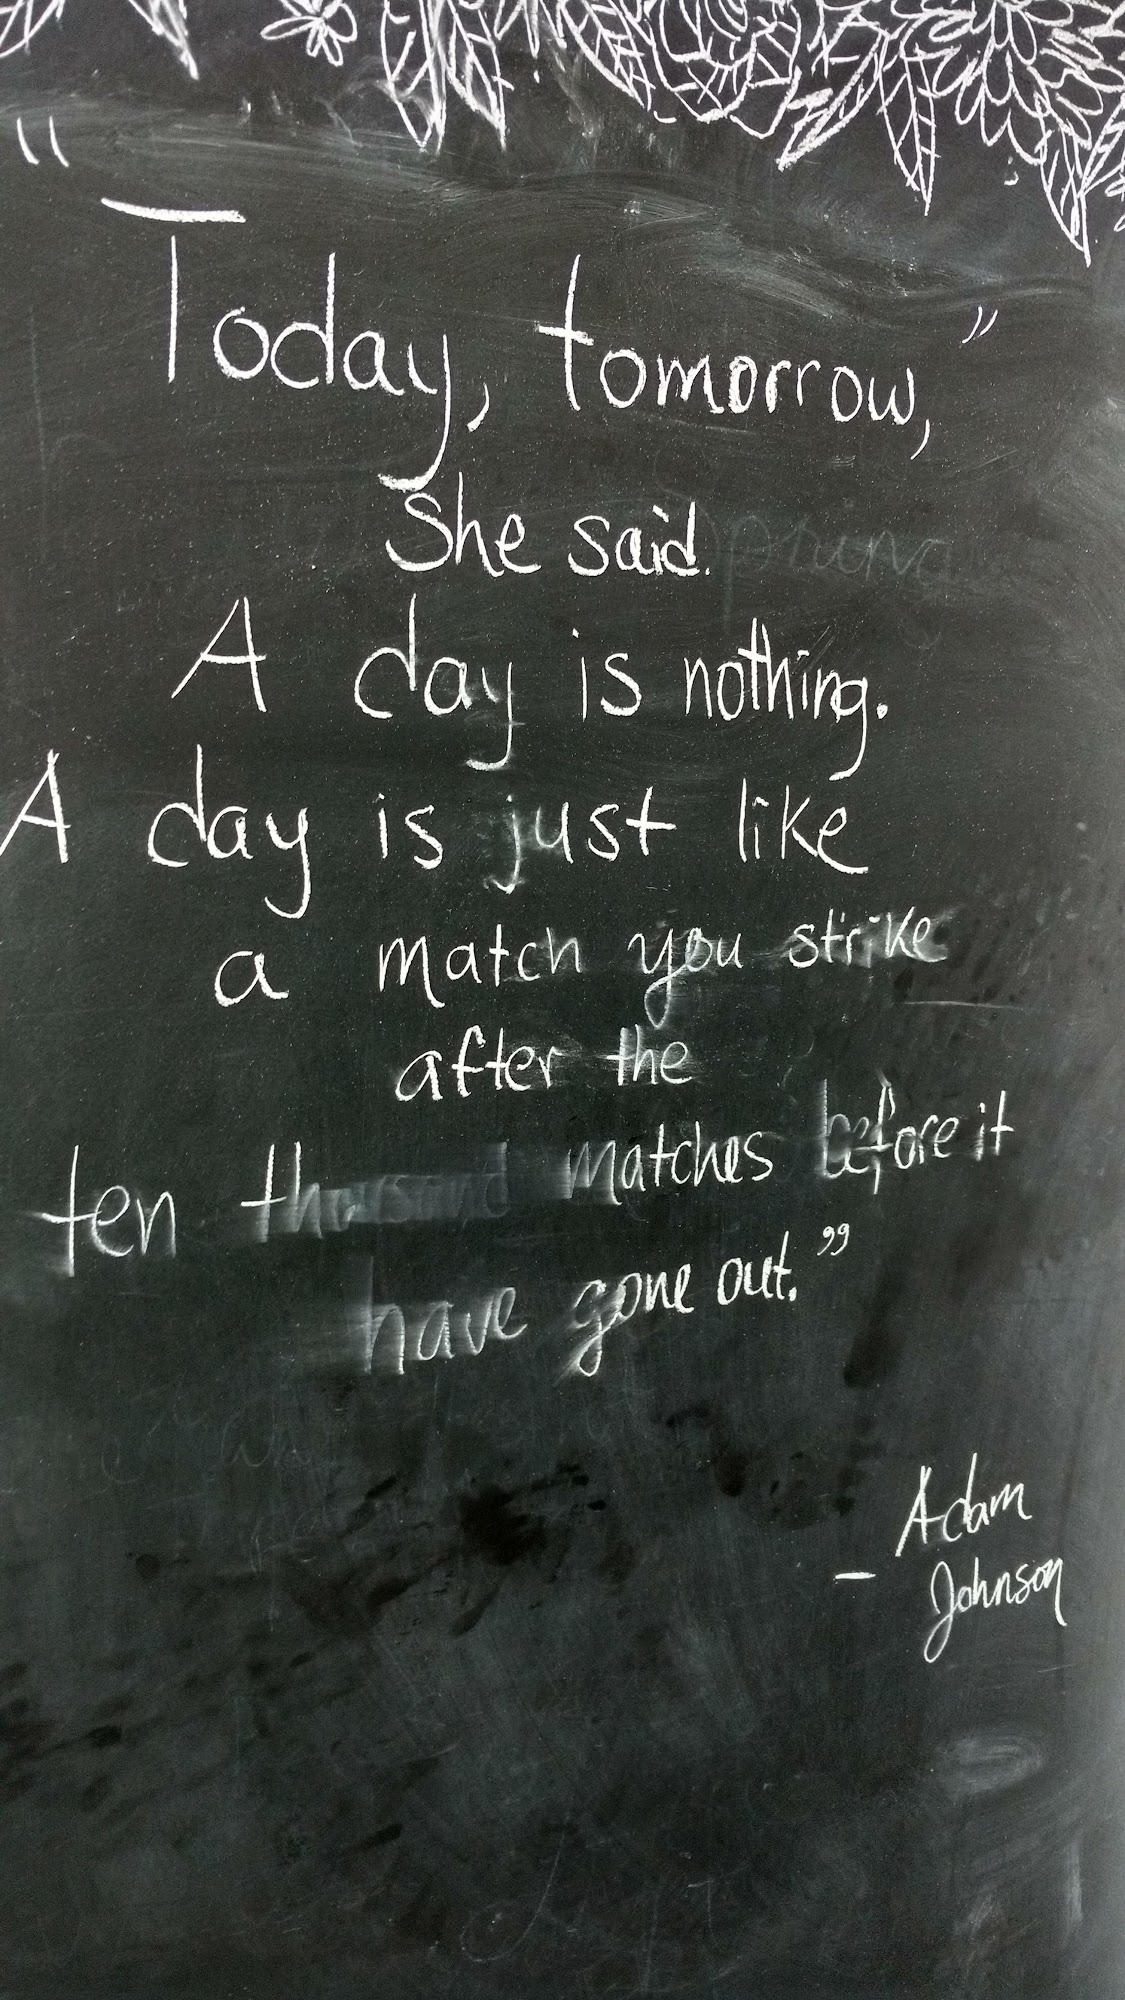 "Today, tomorrow,"
She said.
A day is nothing.
A day is just like
a match you strike
after the
ten thousand matches before it
have gone out."
- Adam
Johnson